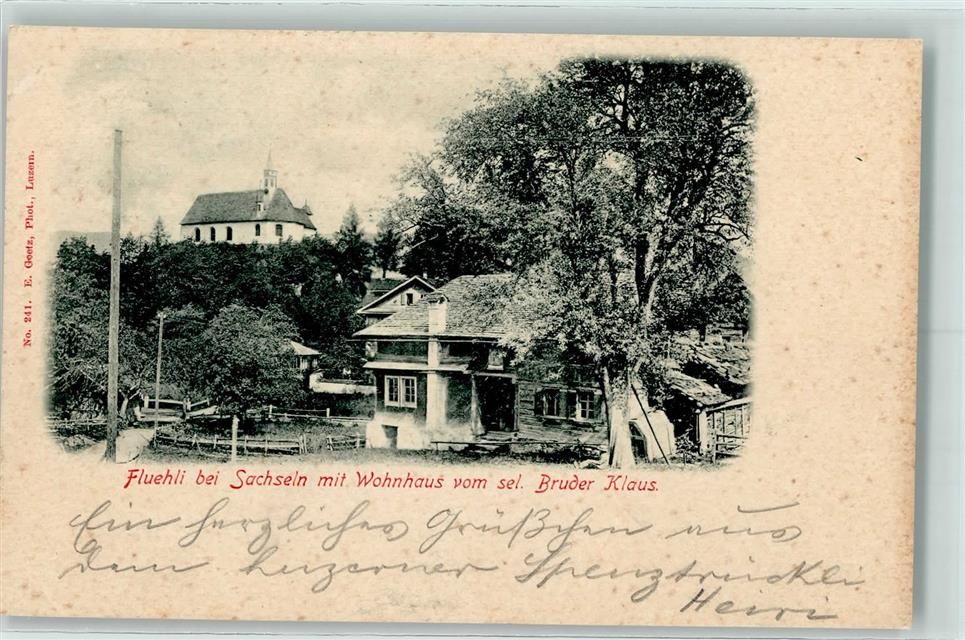 No. 241. E. Goetz, Phot., Luzern.
Fluehli bei Sachseln mit Wohnhaus vom sel. Bruder Klaus.
Ein herzliches Grüßchen aus
dem Luzerner Spenztrückli
Heiri